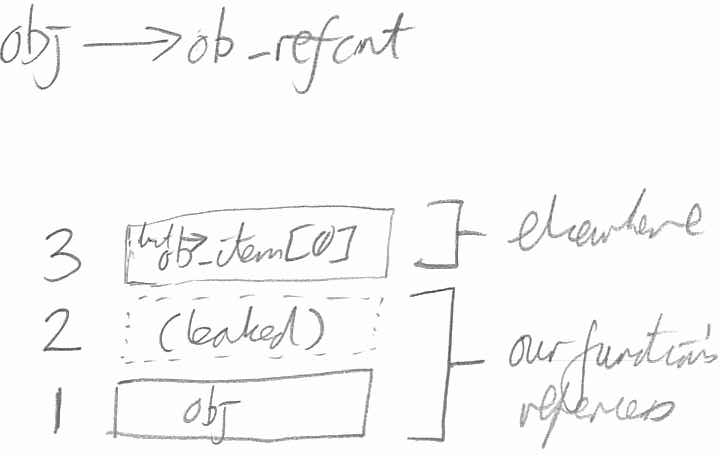 obj → ob_refcnt
3 list→ob_item[0] elsewhere
2 (leaked)
our function's
references
1 obj